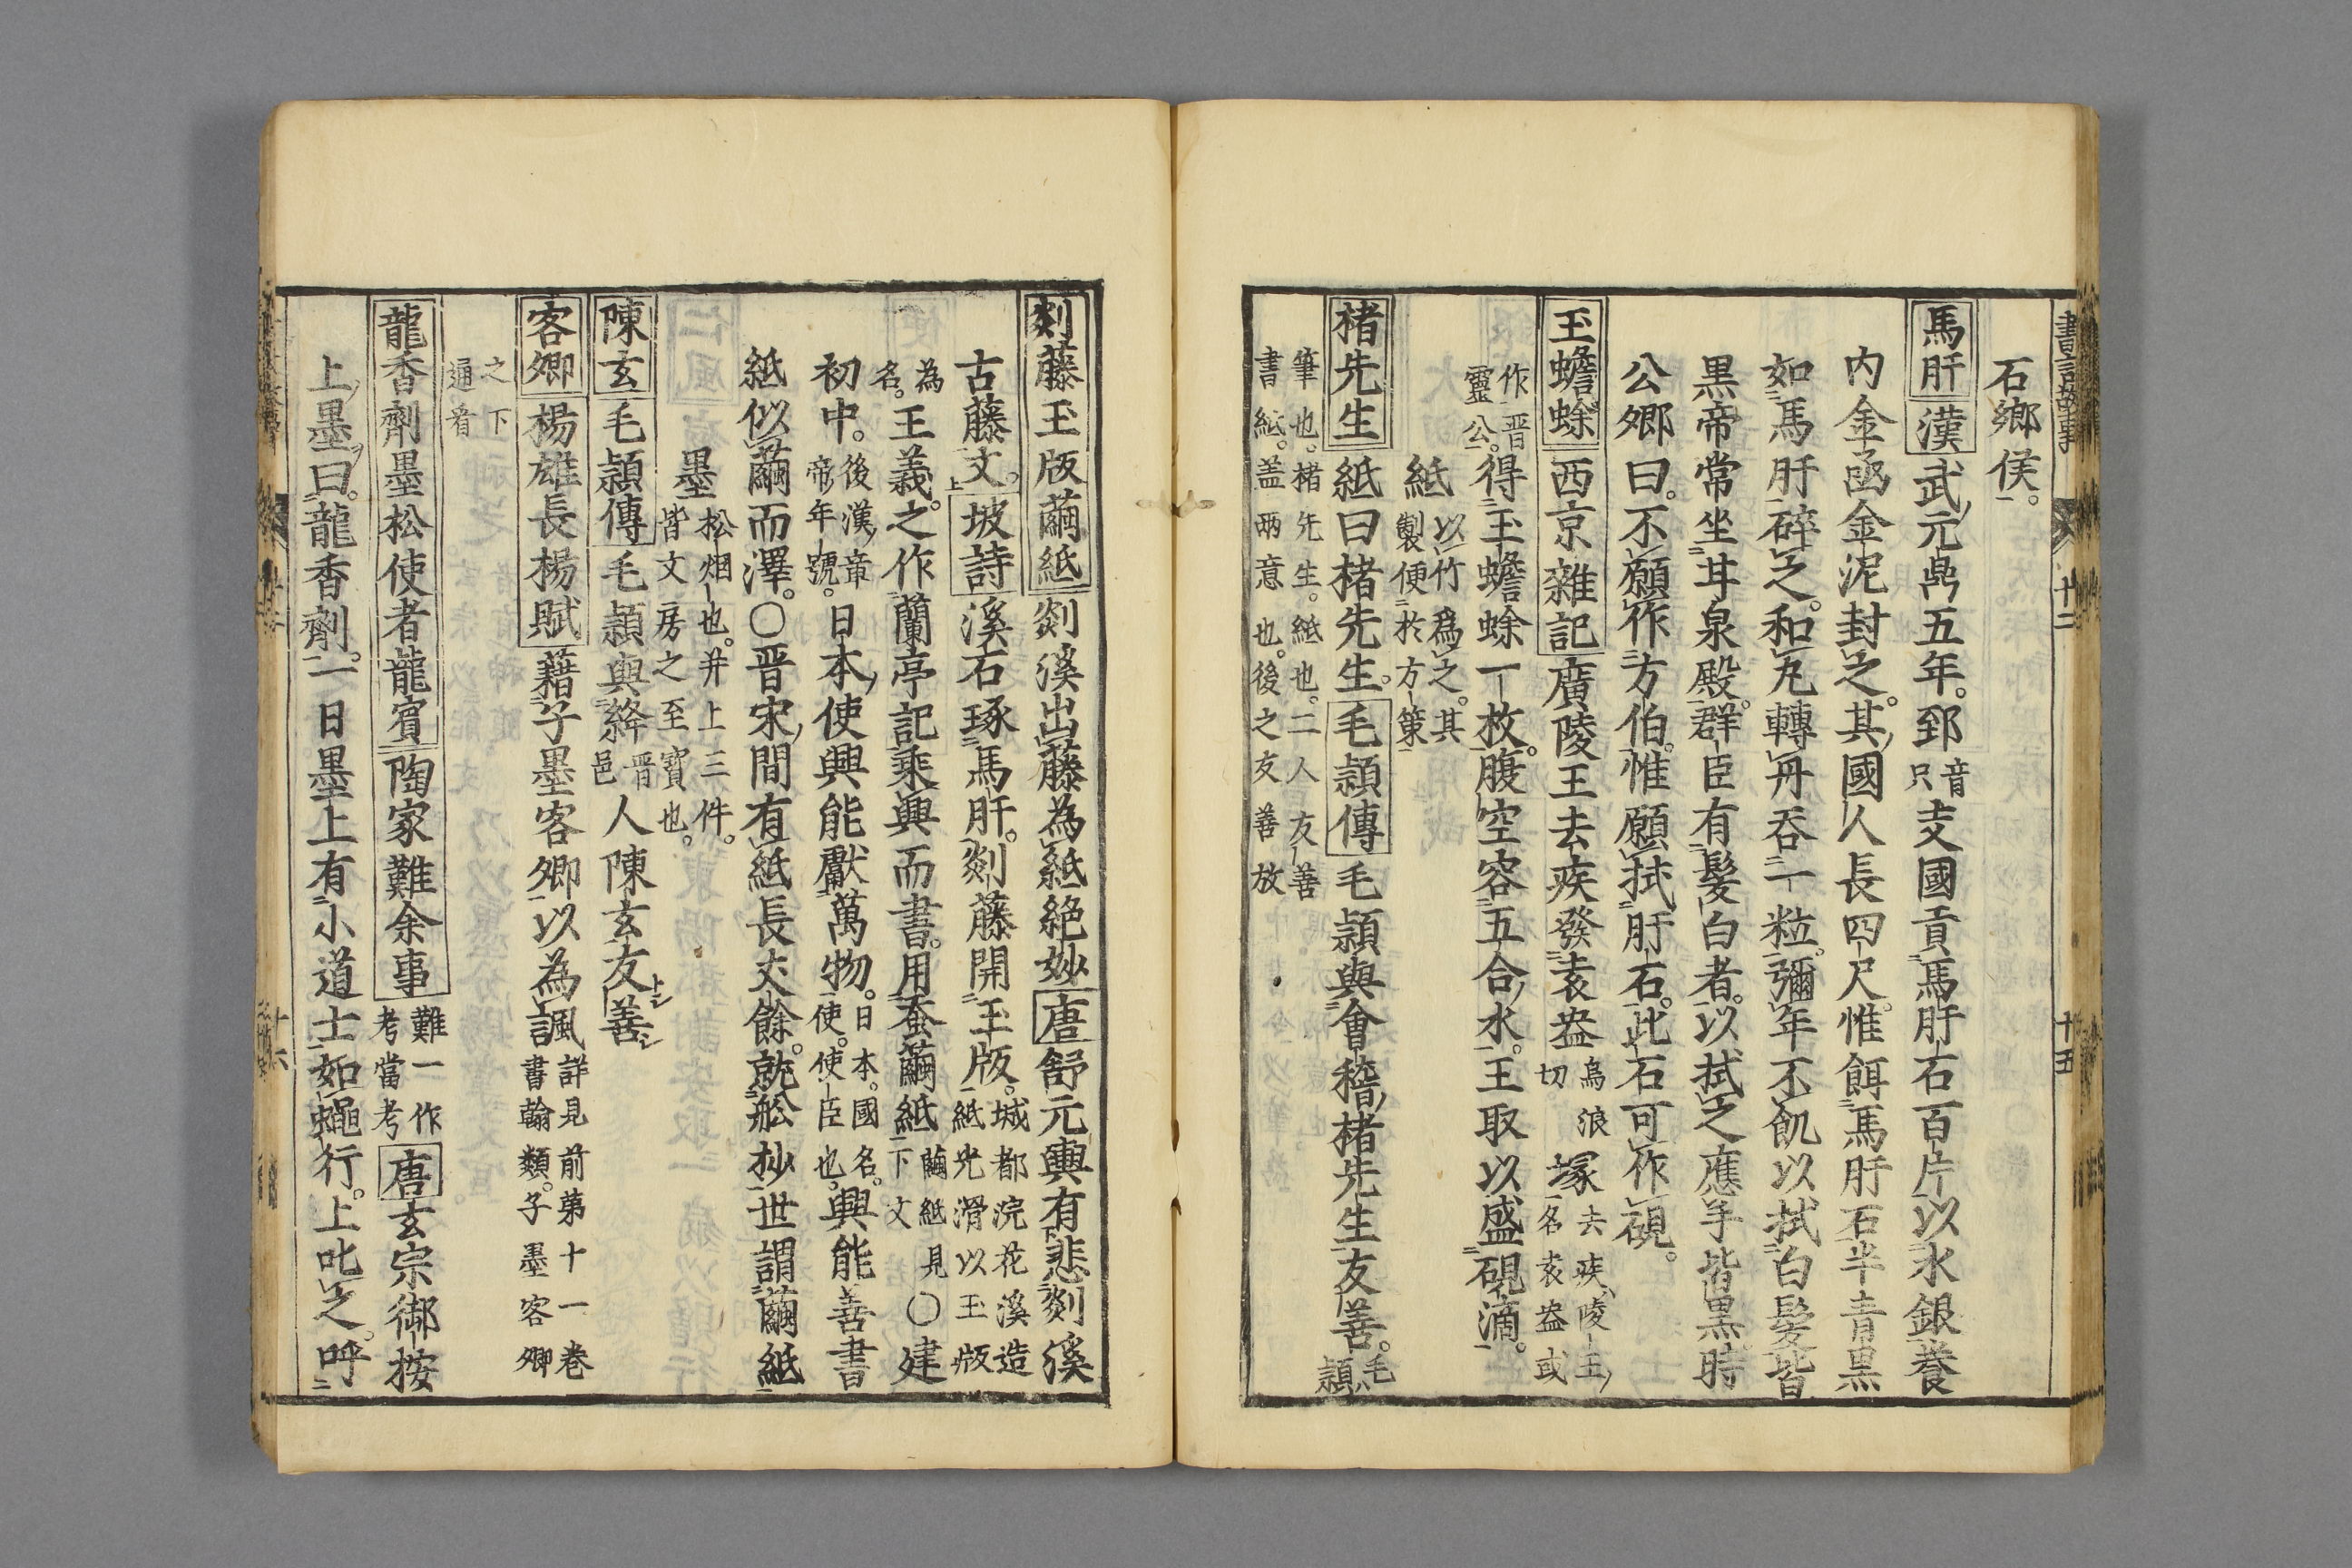 書言故事 十二 十五
石鄉侯。
馬肝 漢武元鼎五年。郅音只支國貢馬肝石百片以水銀養
内金函金泥封之。其國人長四尺。惟餌馬肝石半青黒
如馬肝碎之。和丸轉丹吞一粒。彌年不飢以拭白髮皆
黒帝常坐甘泉殿。群臣有髮白者。以拭之應手皆黒。時
公卿曰。不願作方伯。惟願拭肝石。此石可作硯。
玉蟾蜍 西京雜記 廣陵王去疾發袁盎烏浪切塚去疾陵王名袁盎或
作晋靈公。得玉蟾蜍一枚。腹空容五合水。王取以盛硯滴。
紙 以竹為之。其製便於方策
楮先生 紙曰楮先生。毛頴傳 毛頴與會稽楮先生友善。毛頴
筆也。楮先生。紙也。二人友善
書紙。盖兩意也。後之友善放
剡藤玉版繭紙 剡溪出藤為紙絶妙 唐舒元輿有悲剡溪
古藤文。坡詩 溪石琢馬肝。剡藤開玉版。城都浣花溪造紙光滑以玉版
為名。王羲之作蘭亭記乘興而書。用蚕繭紙繭紙見下文〇建
初中。後漢章帝年號。日本使興能獻萬物。日本。國名。使。使臣也。興能善書
紙似繭而澤。〇晋宋間有紙長丈餘。就舩抄世謂繭紙
墨 松烟也。并上三件。皆文房之至寳也。
陳玄 毛頴傳 毛頴與絳晋邑人陳玄友善トシシ
客卿 楊雄長楊賦 藉子墨客卿以為諷詳見前第十一巻書翰類。子墨客卿
之下通看
龍香劑墨松使者龍賓 陶家難余事 難一作考當考 唐玄宗御按
上墨曰。龍香劑。一日墨上有小道士如蠅行。上叱之。呼